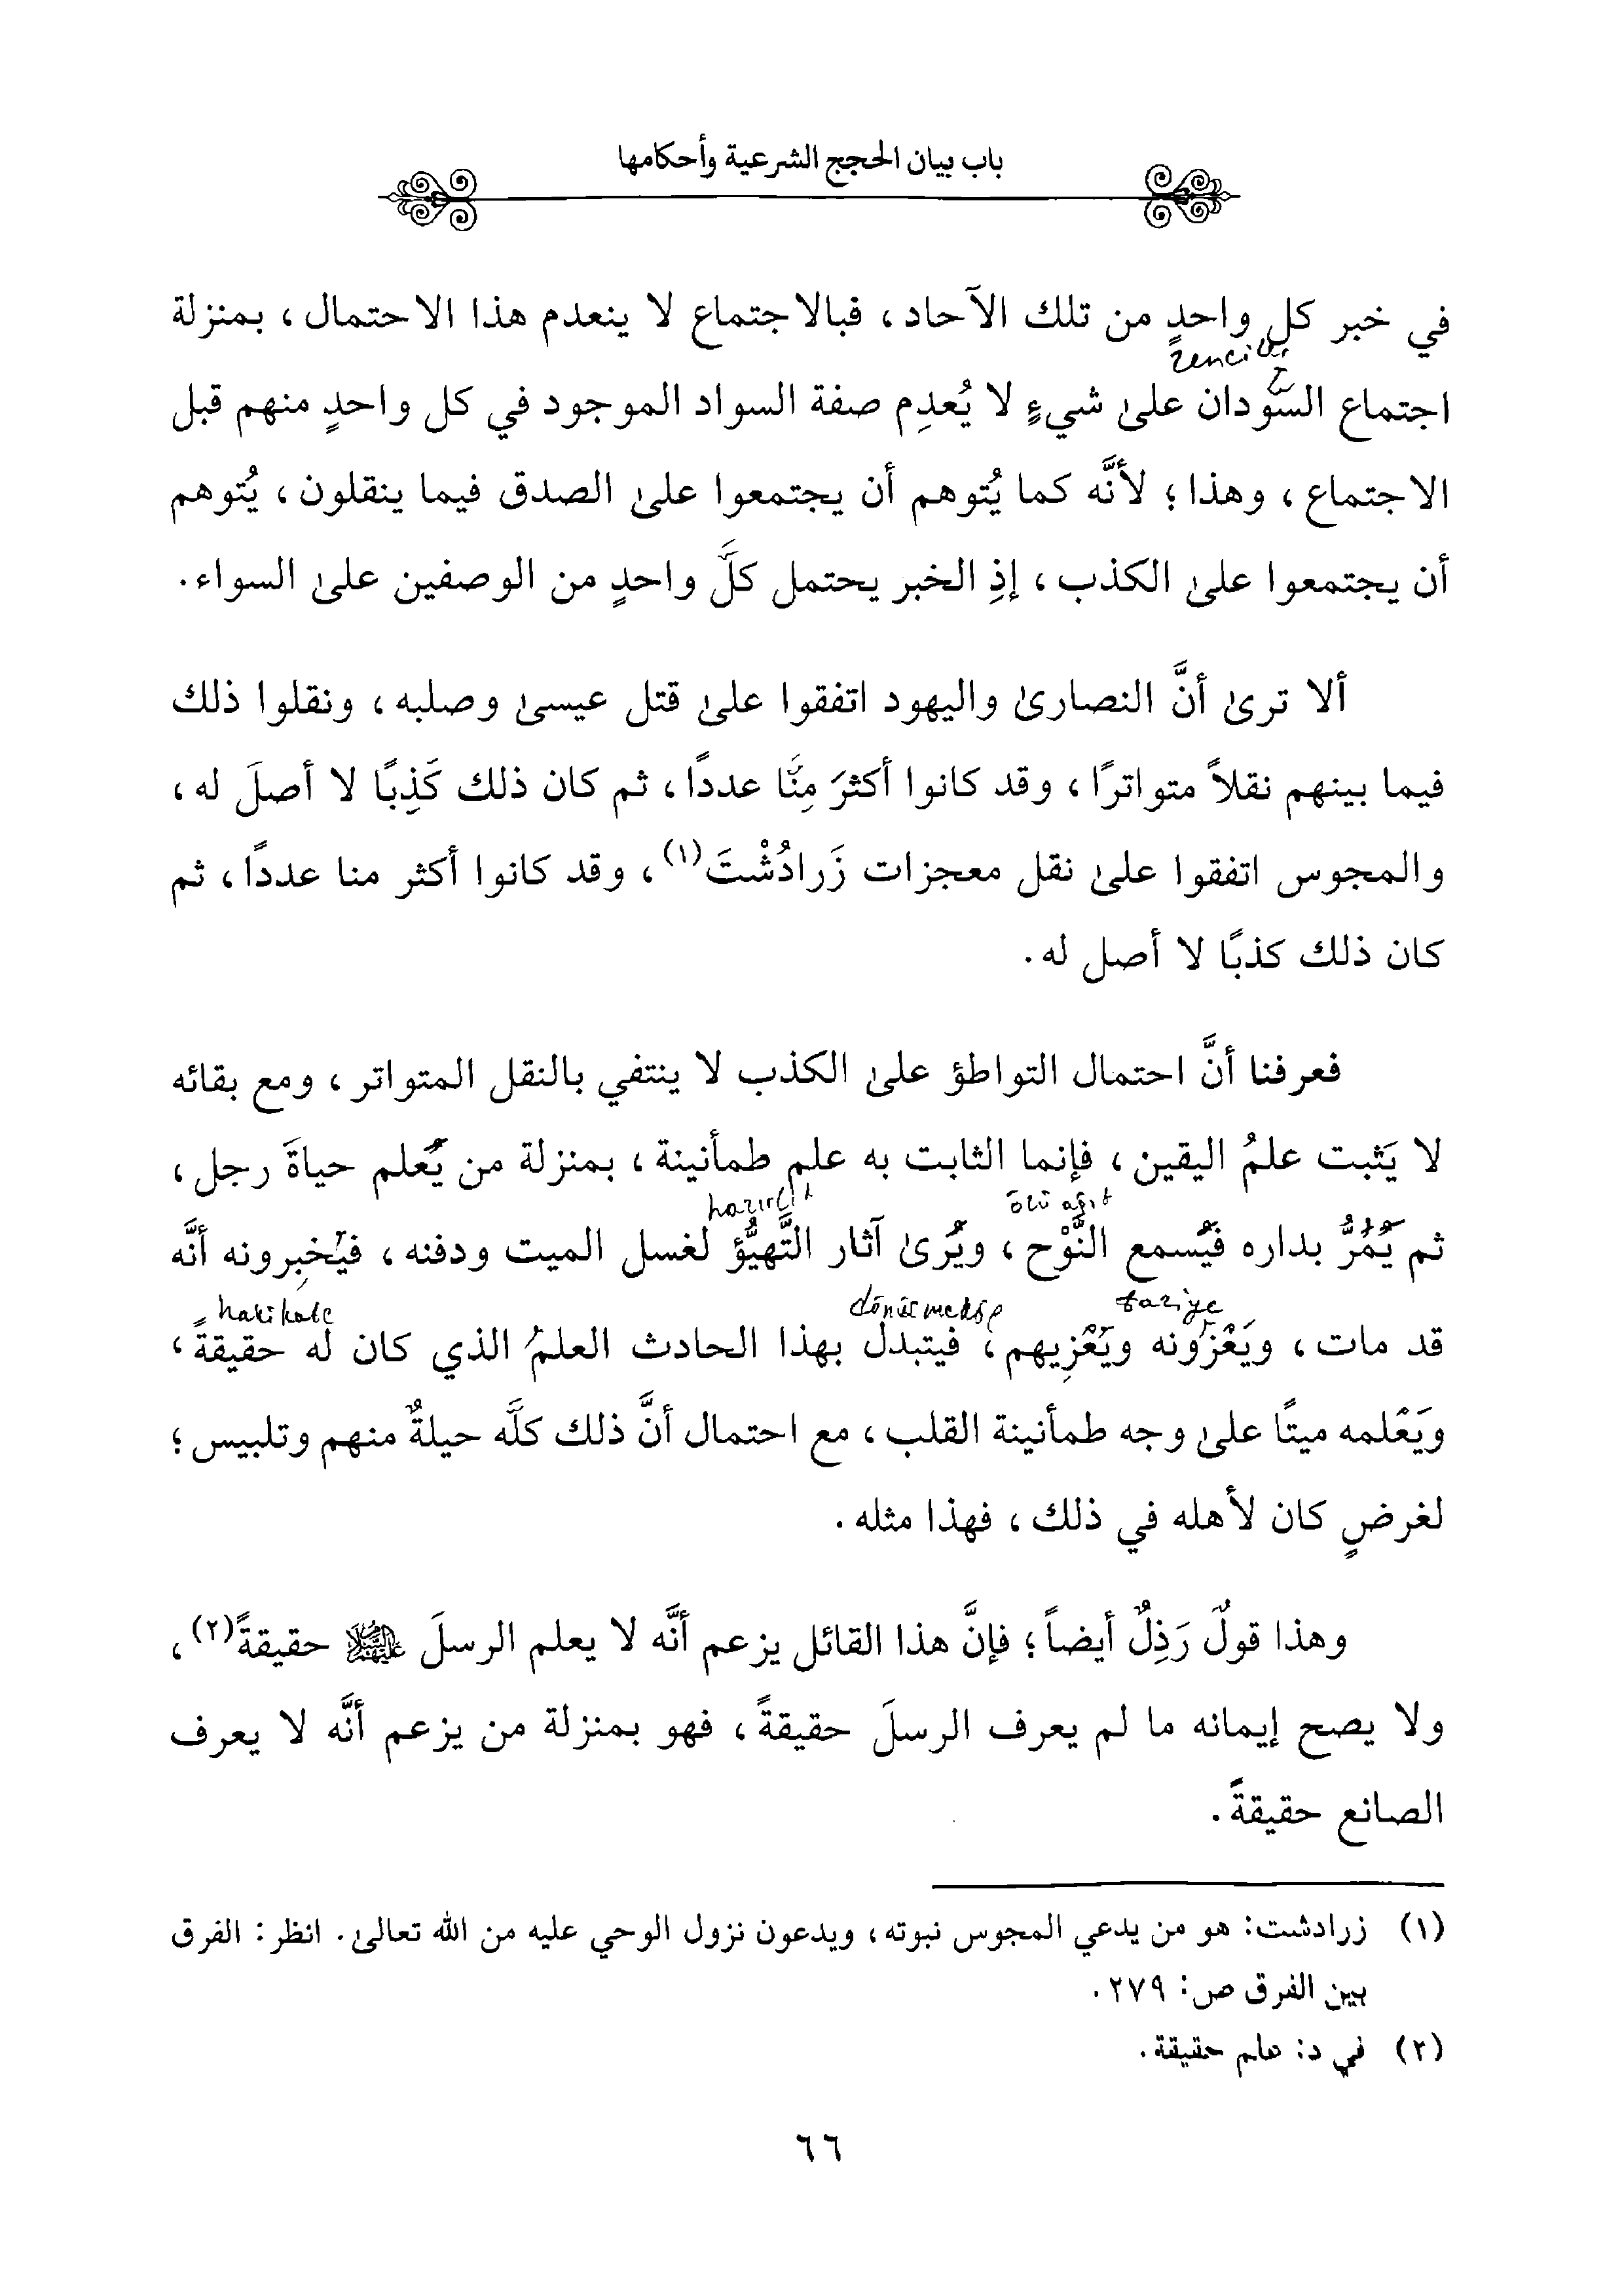 باب بيان الحجج الشرعية وأحكامها
في خبر كل واحدٍ من تلك الآحاد، فبالاجتماع لا ينعدم هذا الاحتمال، بمنزلة
zenciler
اجتماع السُّودان علىٰ شيءٍ لا يُعدِم صفة السواد الموجود في كل واحدٍ منهم قبل
الاجتماع، وهذا؛ لأنَّه كما يُتوهم أن يجتمعوا علىٰ الصدق فيما ينقلون، يُتوهم
أن يجتمعوا علىٰ الكذب، إذِ الخبر يحتمل كلَّ واحدٍ من الوصفين علىٰ السواء.
ألا ترىٰ أنَّ النصارىٰ واليهود اتفقوا علىٰ قتل عيسىٰ وصلبه، ونقلوا ذلك
فيما بينهم نقلاً متواترًا، وقد كانوا أكثرَ مِنَّا عددًا، ثم كان ذلك كَذِبًا لا أصلَ له،
والمجوس اتفقوا علىٰ نقل معجزات زَرادُشْتَ(١)، وقد كانوا أكثر منا عددًا، ثم
كان ذلك كذبًا لا أصل له.
فعرفنا أنَّ احتمال التواطؤ علىٰ الكذب لا ينتفي بالنقل المتواتر، ومع بقائه
لا يَثبت علمُ اليقين، فإنما الثابت به علم طمأنينة، بمنزلة من يُعلم حياةَ رجل،
ölü ağıt hazırlık
ثم يَمُرُّ بداره فيُسمع النَّوْح، ويُرىٰ آثار التَّهيُّؤ لغسل الميت ودفنه، فيُخبِرونه أنَّه
taziye dönüşmekte hakikate
قد مات، ويَعْزونه ويَعْزِيهم، فيتبدل بهذا الحادث العلمُ الذي كان له حقيقةً،
ويَعْلمه ميتًا علىٰ وجه طمأنينة القلب، مع احتمال أنَّ ذلك كلَّه حيلةٌ منهم وتلبيس؛
لغرضٍ كان لأهله في ذلك، فهذا مثله.
وهذا قولٌ رَذِلٌ أيضاً؛ فإنَّ هذا القائل يزعم أنَّه لا يعلم الرسلَ حقيقةً(٢)،
ولا يصح إيمانه ما لم يعرف الرسلَ حقيقةً، فهو بمنزلة من يزعم أنَّه لا يعرف
الصانع حقيقةً.
(١) زرادشت: هو من يدعي المجوس نبوته، ويدعون نزول الوحي عليه من الله تعالىٰ. انظر: الفرق
بين الفرق ص: ٢٧٩.
(٢) في د: علم حقيقة.
٦٦